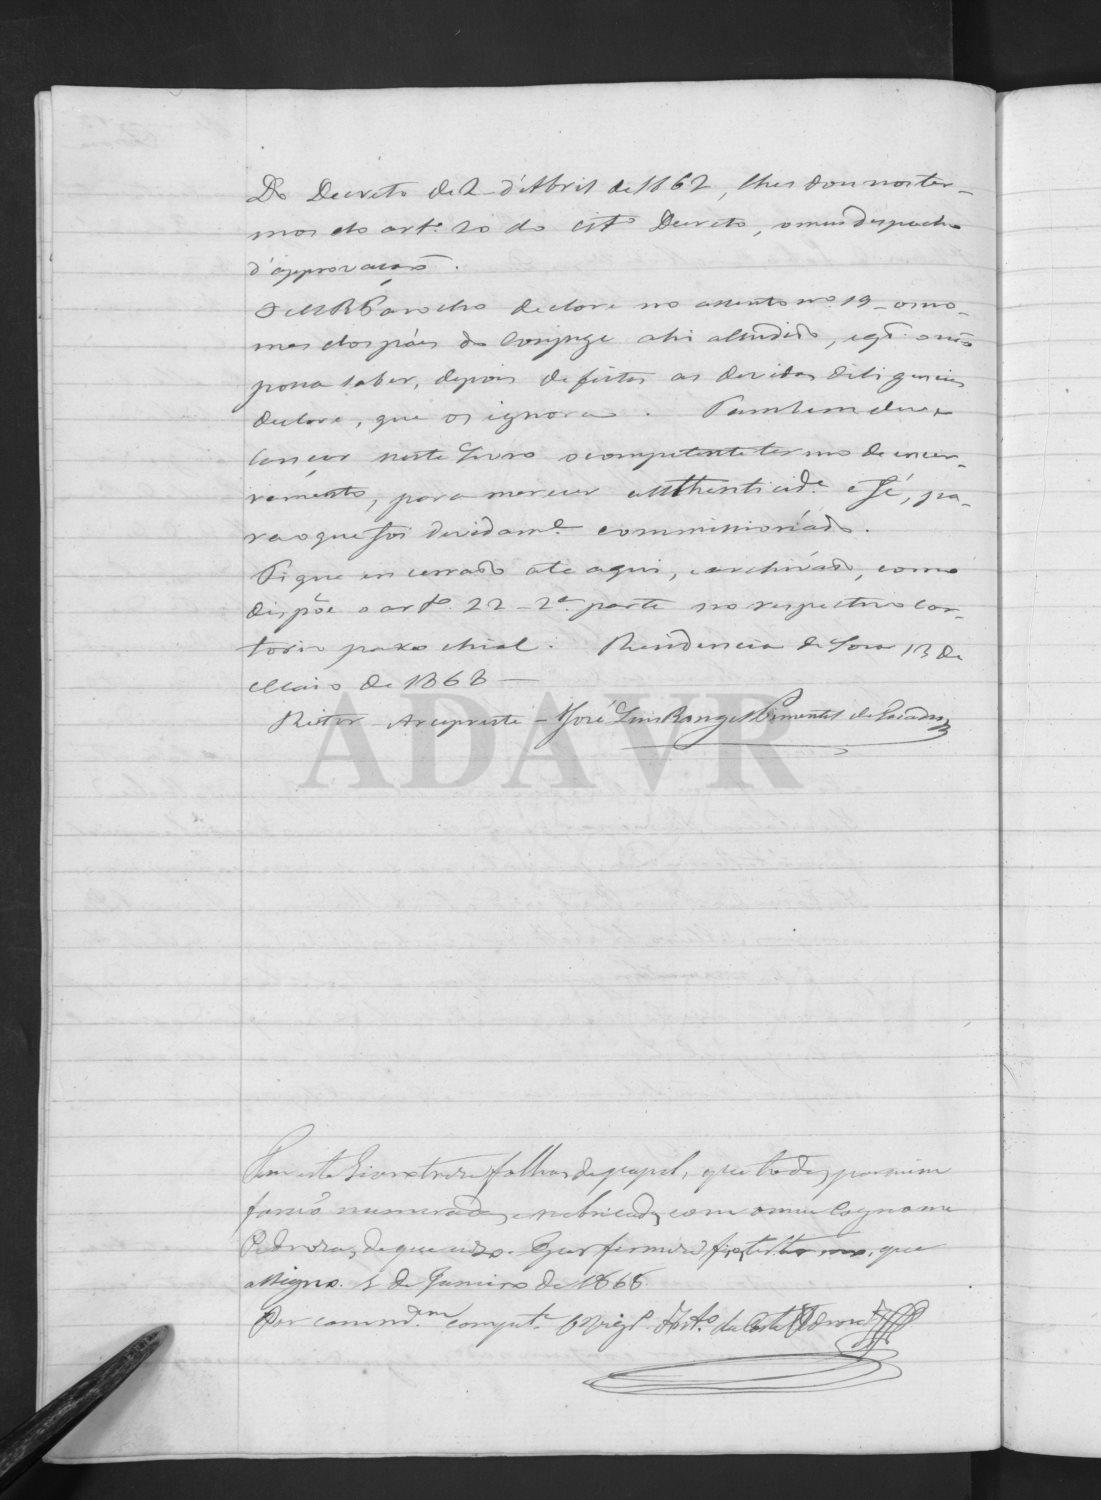 do Decreto de 2 d'Abril de 1862, lhes dou nos ter-
mos do art.º 20 do cit.º Decreto, o meu despacho
d'approvação.
O M R Parocho declare no assento n.º 19 o no-
mes dos páes do Conjuge ahi alludido, e q.do o não
possa saber, depois de feitas as devidas diligencias
declare, que os ignora. Tambem deve
lançar neste Livro o competente termo de encer-
ramento, para merecer authenticid.e e fé, pa-
ra o que foi devidam.e commissionado.
Fique encerrado até aqui, e archivado, como
dispõe o art.º 22 - 2.ª parte no respectivo car-
torio parochial. Residencia de 13 de
Maio de 1868 —
Reitor Arcipreste - José Luis Rangel Pimentel de
ADAVR
Tem este Livro treze folhas de papel, que todas por mim
forão numeradas, e rubricadas com o meu Cognome
Pedroza, de que uzo. E por firmeza fiz este termo, que
assigno. 5 de Janeiro de 1868
Por comm.am compet.e O da Costa Pedroza